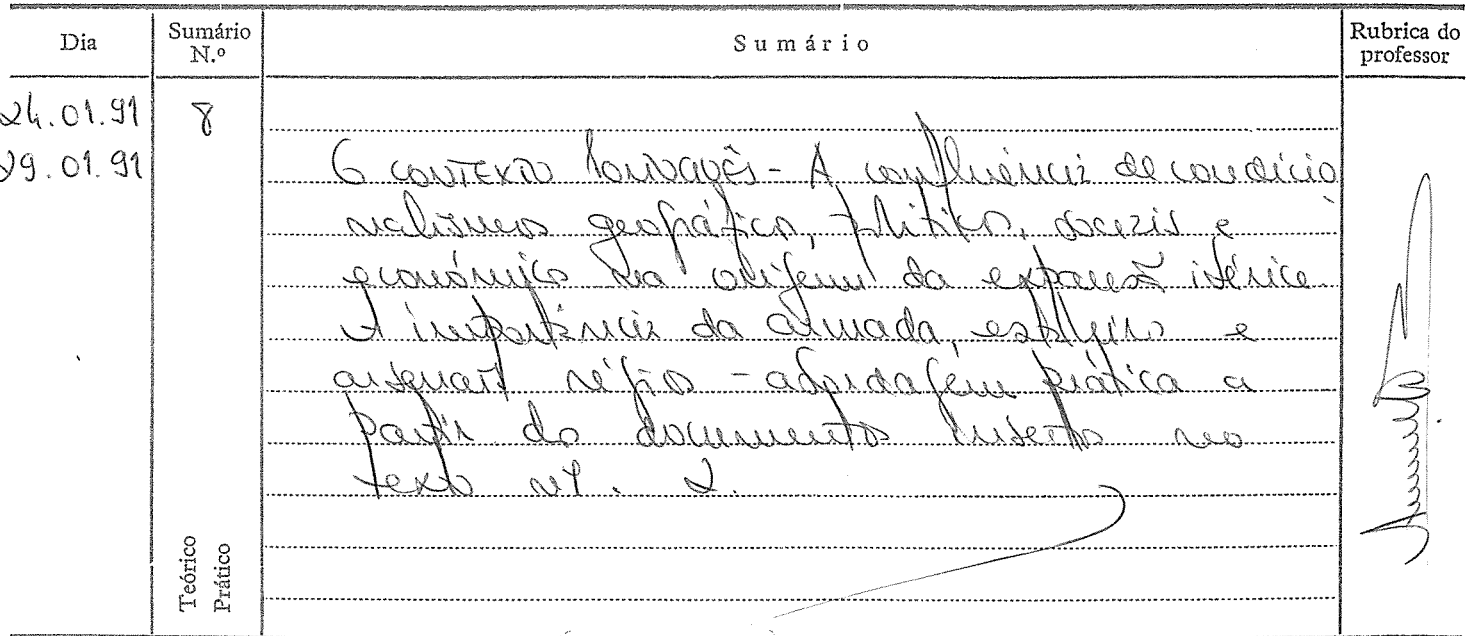 Dia
Sumário N.º
Sumário
Rubrica do professor
24.01.91
29.01.91
8
O CONTEXTO PORTUGUÊS - A confluência de condicio
nalismos geográficos, políticos, sociais e
económicos na origem da expansão ibérica.
A importância da armada, estaleiros e
arsenais régios - abordagem prática a
partir do documento inserto no
texto nº. 2.
Teórico
Prático